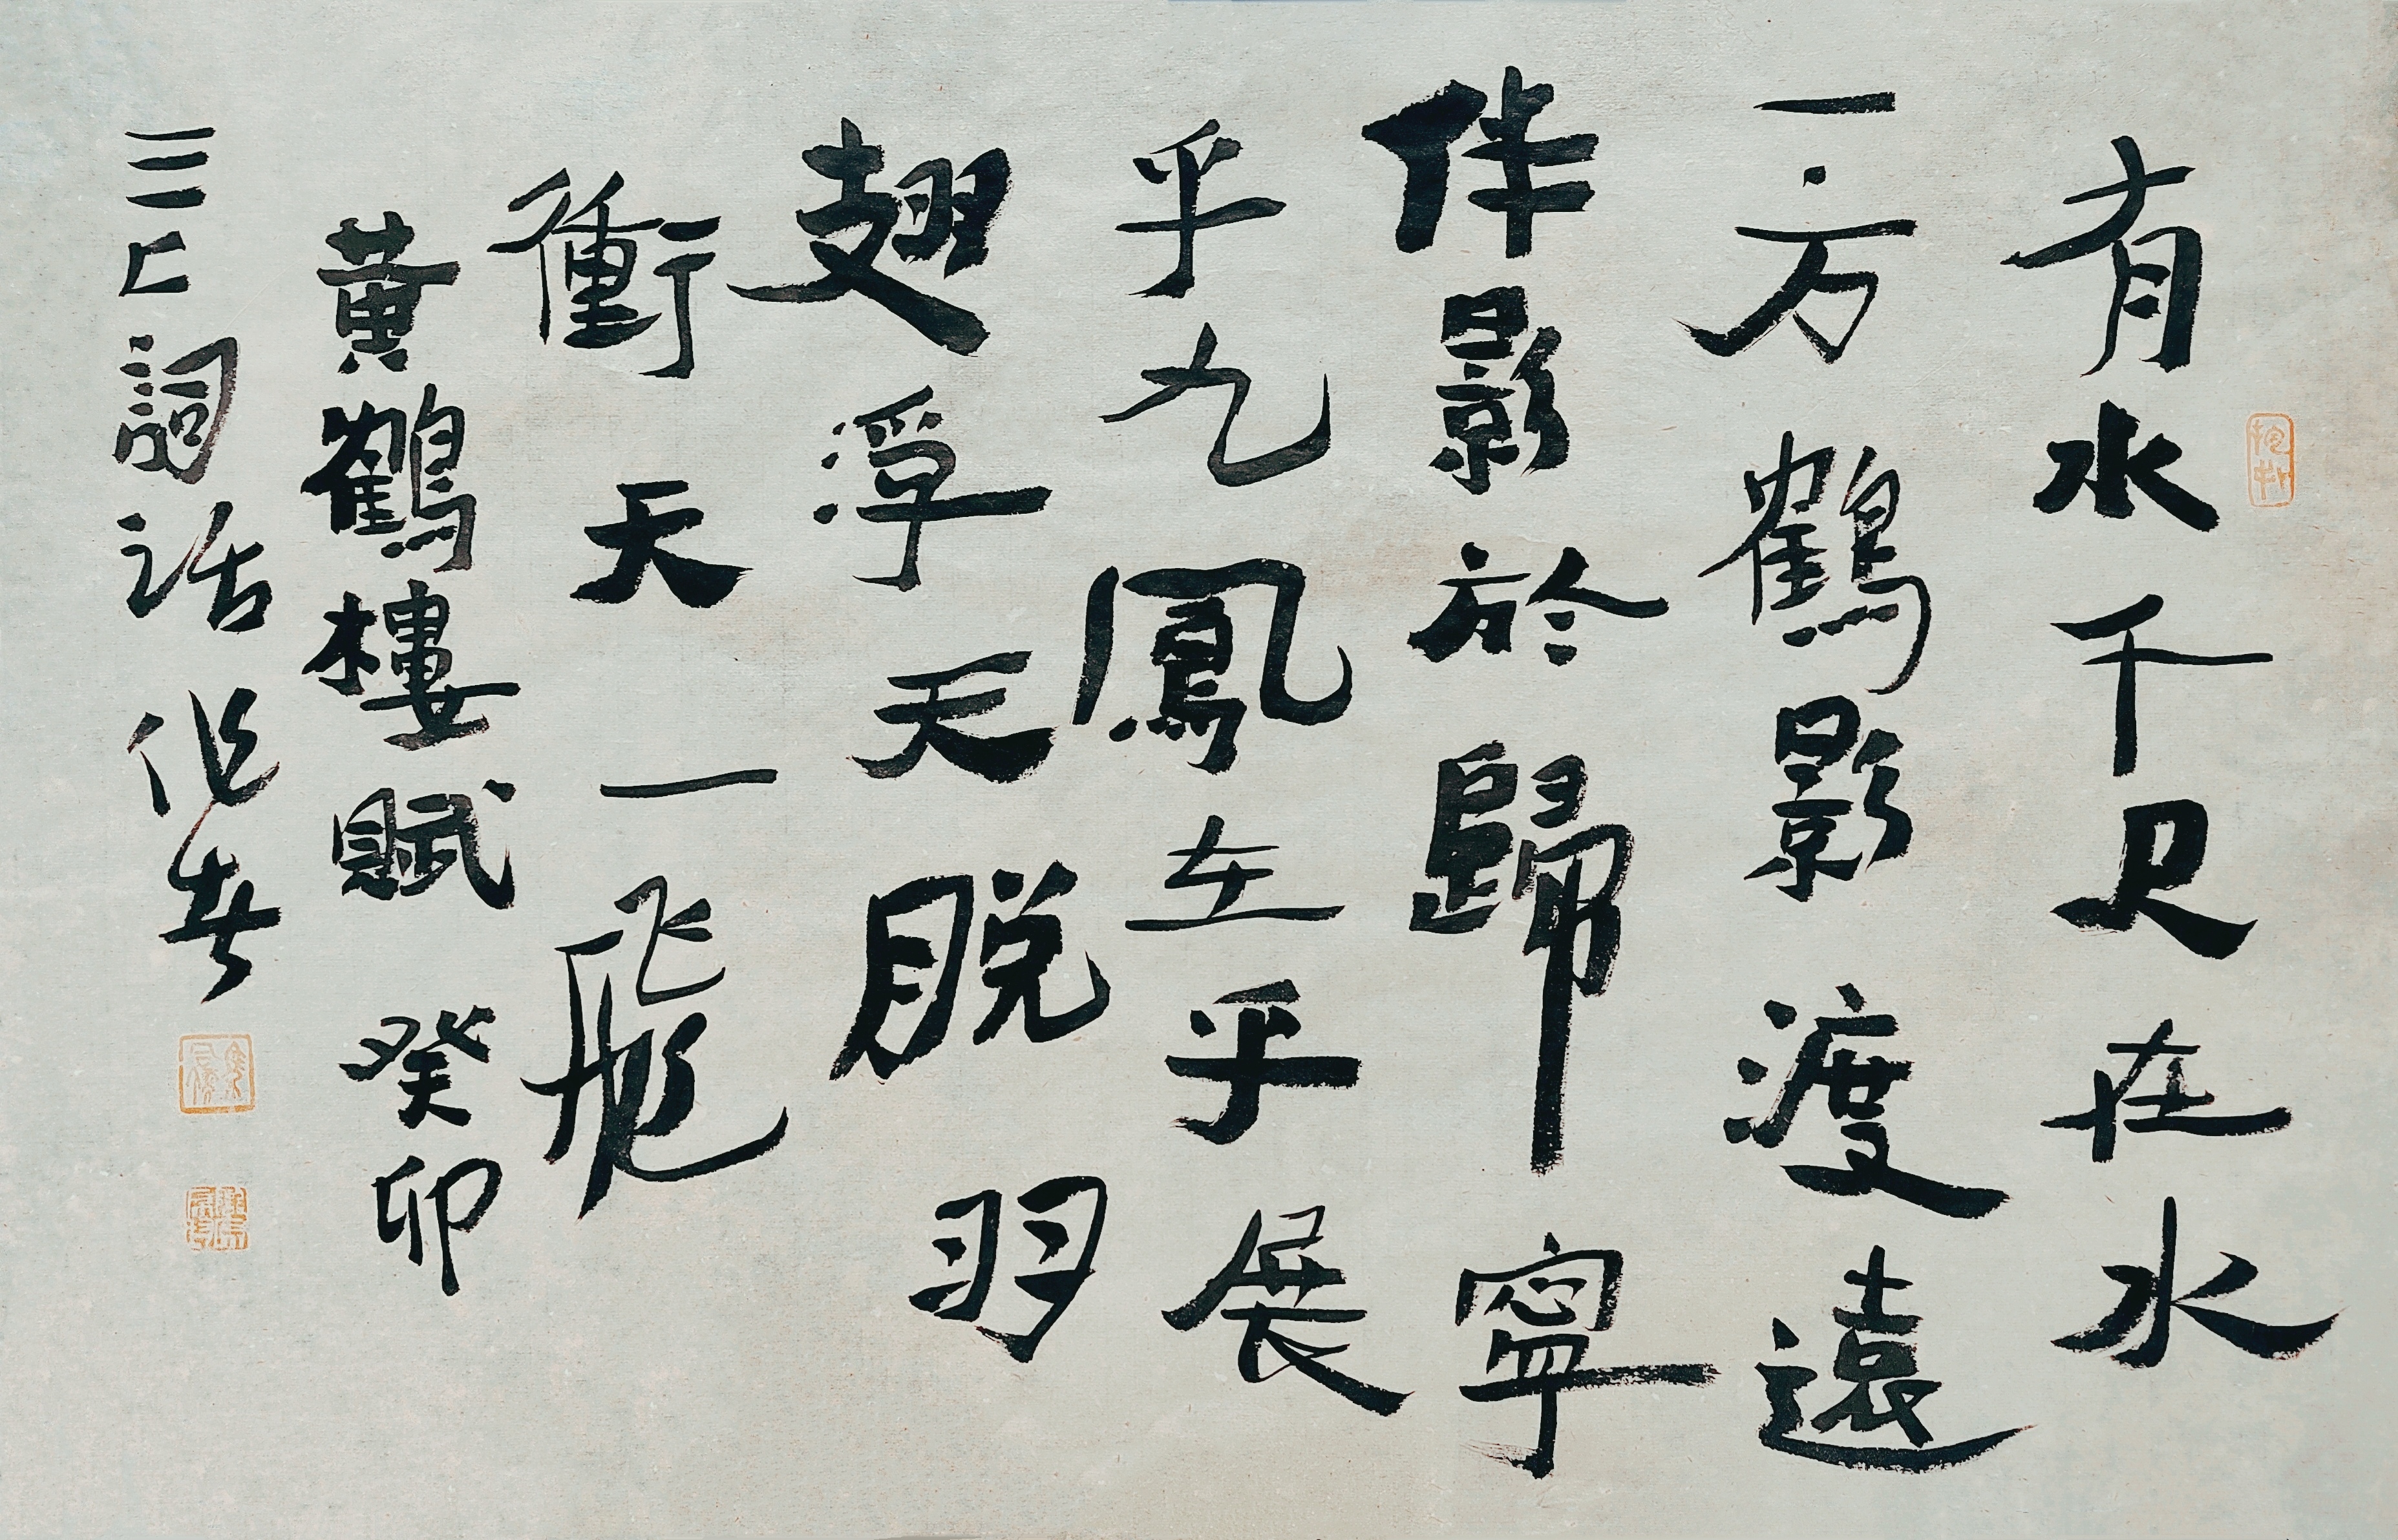 有水千尺在水
一方鶴影渡遠
伴影於歸寧
乎九鳳在乎展
翅浮天脱羽
衝天一飛
黃鶴樓賦 癸卯
三三 詞話